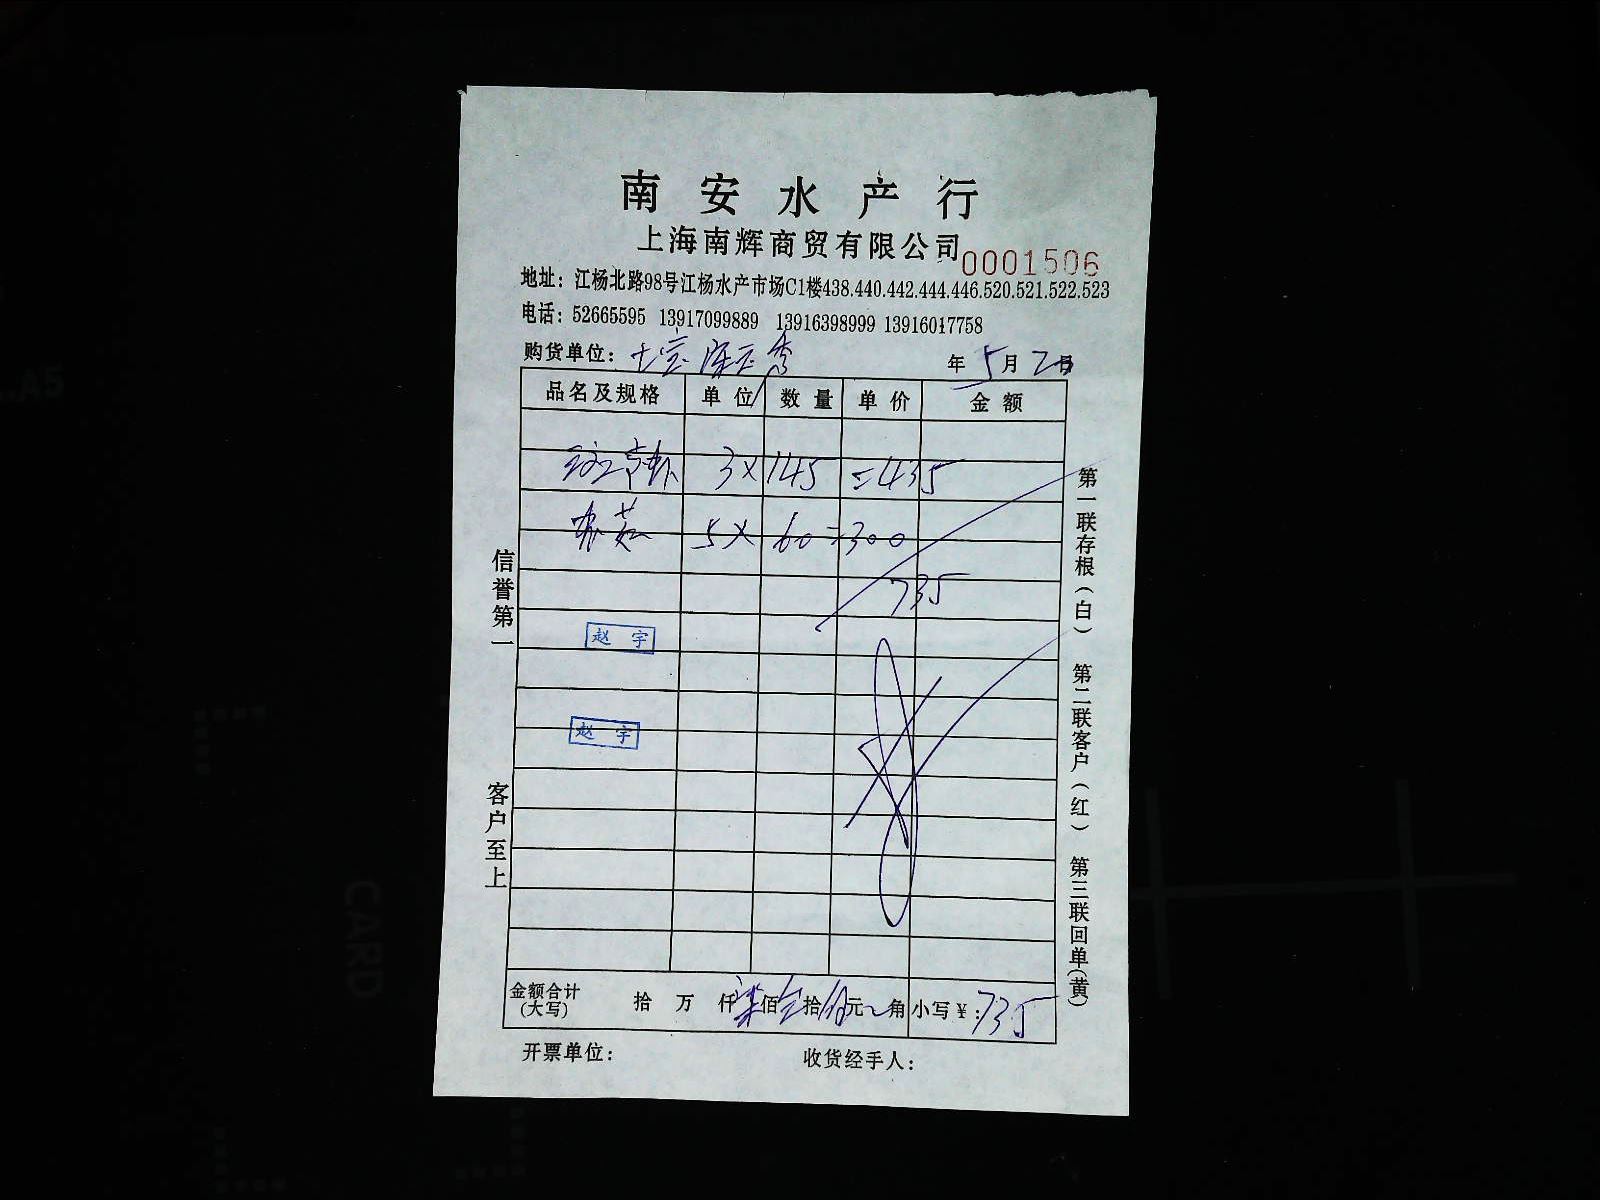 南安水产行
上海南辉商贸有限公司 0001506
地址：江杨北路98号江杨水产市场C1楼438.440.442.444.446.520.521.522.523
电话：52665595 13917099889 13916398999 13916017758
购货单位： 年 5月2日
品名及规格 单位 数量 单价 金额
3×145=435
5×60=300
735
赵宇
赵宇
金额合计(大写) 拾 万 仟柒佰叁拾伍元 角 小写¥：735
开票单位： 收货经手人：
信誉第一 客户至上
第一联存根（白） 第二联客户（红） 第三联回单(黄)
CARD
A5